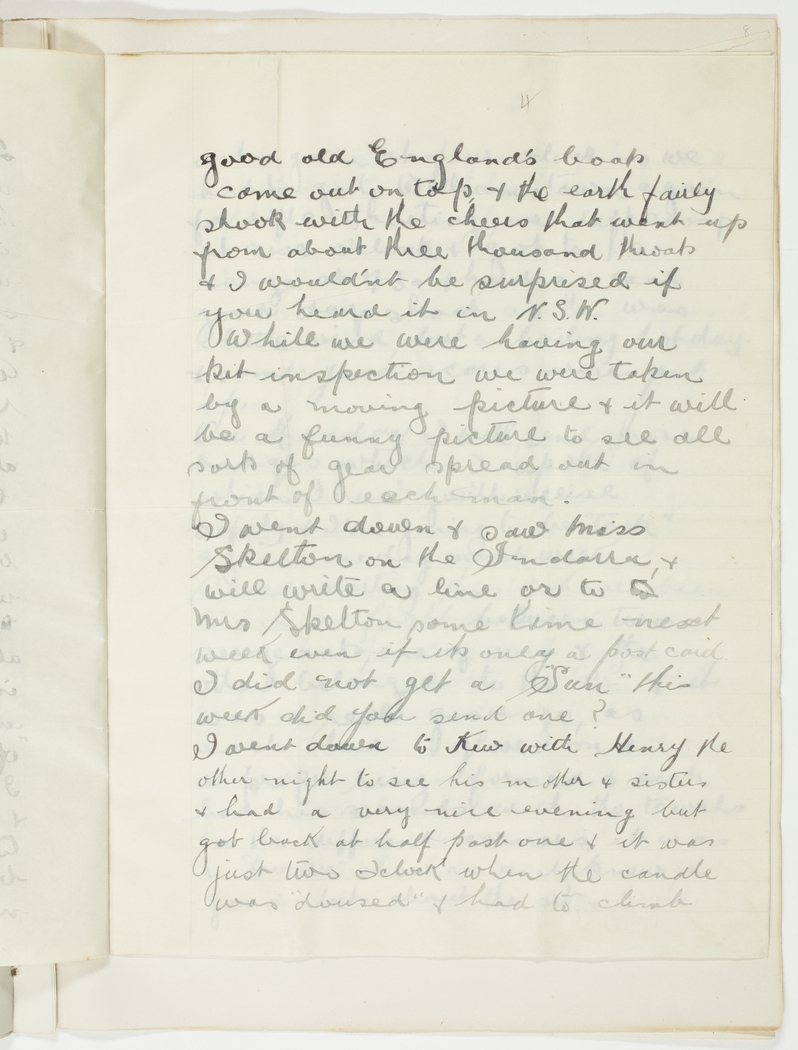 8
4
good old England's boats
come out on top, & the earth fairly
shook with the cheers that went up
from about three thousand throats
& I wouldn't be surprised if
you heard it in N.S.W.
Whill we were having our
kit inspection we were taken
by a moving picture & it will
be a funny picture to see all
sorts of gear spread out in
front of each man.
I went down & saw Miss
Skelton on the Indarra, &
will write a line or to to
Mrs Skelton some time next
week, even if its only a post card.
I did not get a "Sun" this
week did you send one?
I went down to Kew with Henry the
other night to see his mother & sisters
& had a very nice evening but
got back at half past one & it was
just two o'clock when the candle
was "doused" & had to climb